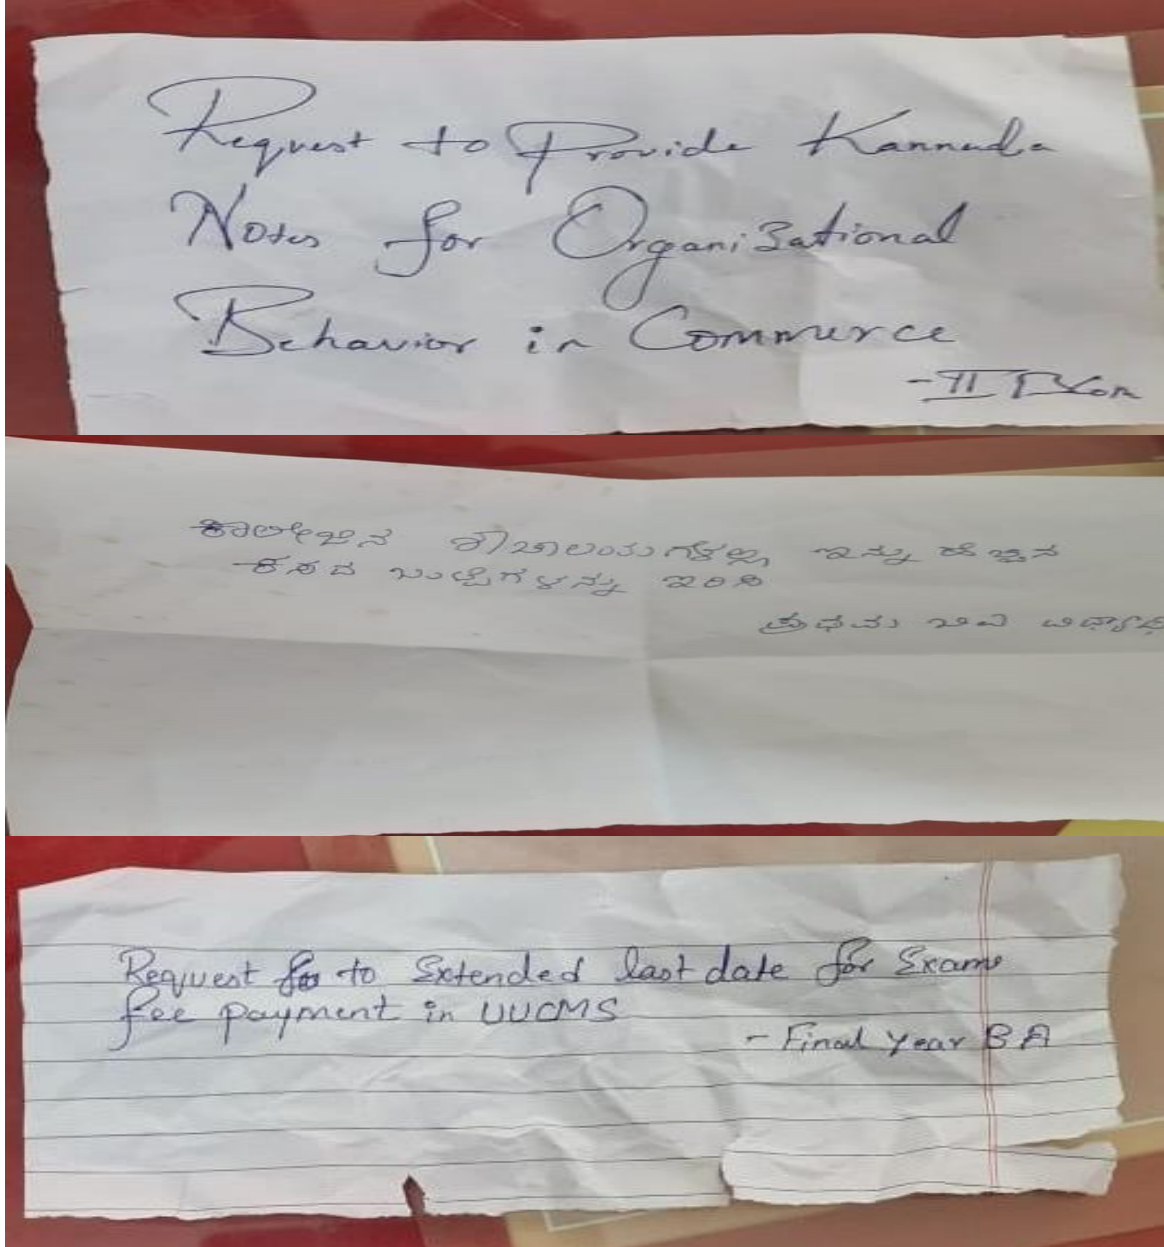 Request to Provide Kannada
Notes for Organizational
Behavior in Commerce
- II BCom
ಕಾಲೇಜಿನ ಶೌಚಾಲಯಗಳಲ್ಲಿ ಇನ್ನು ಹೆಚ್ಚಿನ
ಕಸದ ಬುಟ್ಟಿಗಳನ್ನು ಇರಿಸಿ
ಪ್ರಥಮ ಬಿಎ
Request to Extended last date for Exam
fee payment in UUCMS
- Final Year BA